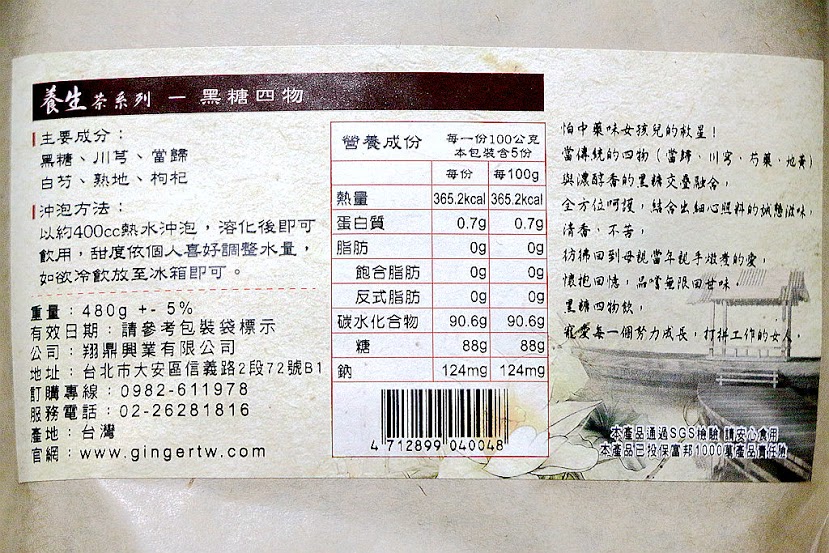 養生茶系列 － 黑糖四物
主要成分：
黑糖、川芎、當歸
白芍、熟地、枸杞
沖泡方法：
以約400cc熱水沖泡，溶化後即可
飲用，甜度依個人喜好調整水量，
如欲冷飲放至冰箱即可。
重量：480g +- 5%
有效日期：請參考包裝袋標示
公司：翔鼎興業有限公司
地址：台北市大安區信義路2段72號B1
訂購專線：0982-611978
服務電話：02-26281816
產地：台灣
官網：www.gingertw.com
營養成份 每一份100公克
本包裝含5份
每份 每100g
熱量 365.2kcal 365.2kcal
蛋白質 0.7g 0.7g
脂肪 0g 0g
飽合脂肪 0g 0g
反式脂肪 0g 0g
碳水化合物 90.6g 90.6g
糖 88g 88g
鈉 124mg 124mg
4 712899 040048
怕中藥味女孩兒的救星！
當傳統的四物（當歸、川芎、芍藥、地黃）
與濃醇香的黑糖交疊融合，
全方位呵護，結合出細心照料的誠懇滋味，
清香、不苦，
彷彿回到母親當年親手滋養的愛，
懷抱回憶，品嚐無限回甘味，
黑糖四物飲，
寵愛每一個努力成長，打拼工作的女人，
本產品通過SGS檢驗 請安心食用
本產品已投保富邦1000萬產品責任險